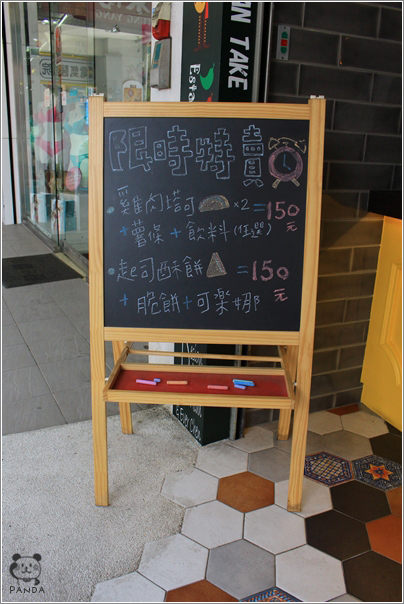 AN TAKE
Esta
限時特賣
雞肉塔可 ×2 = 150元
+ 薯條 + 飲料(任選)
起司酥餅 = 150元
+ 脆餅 + 可樂娜
PANDA